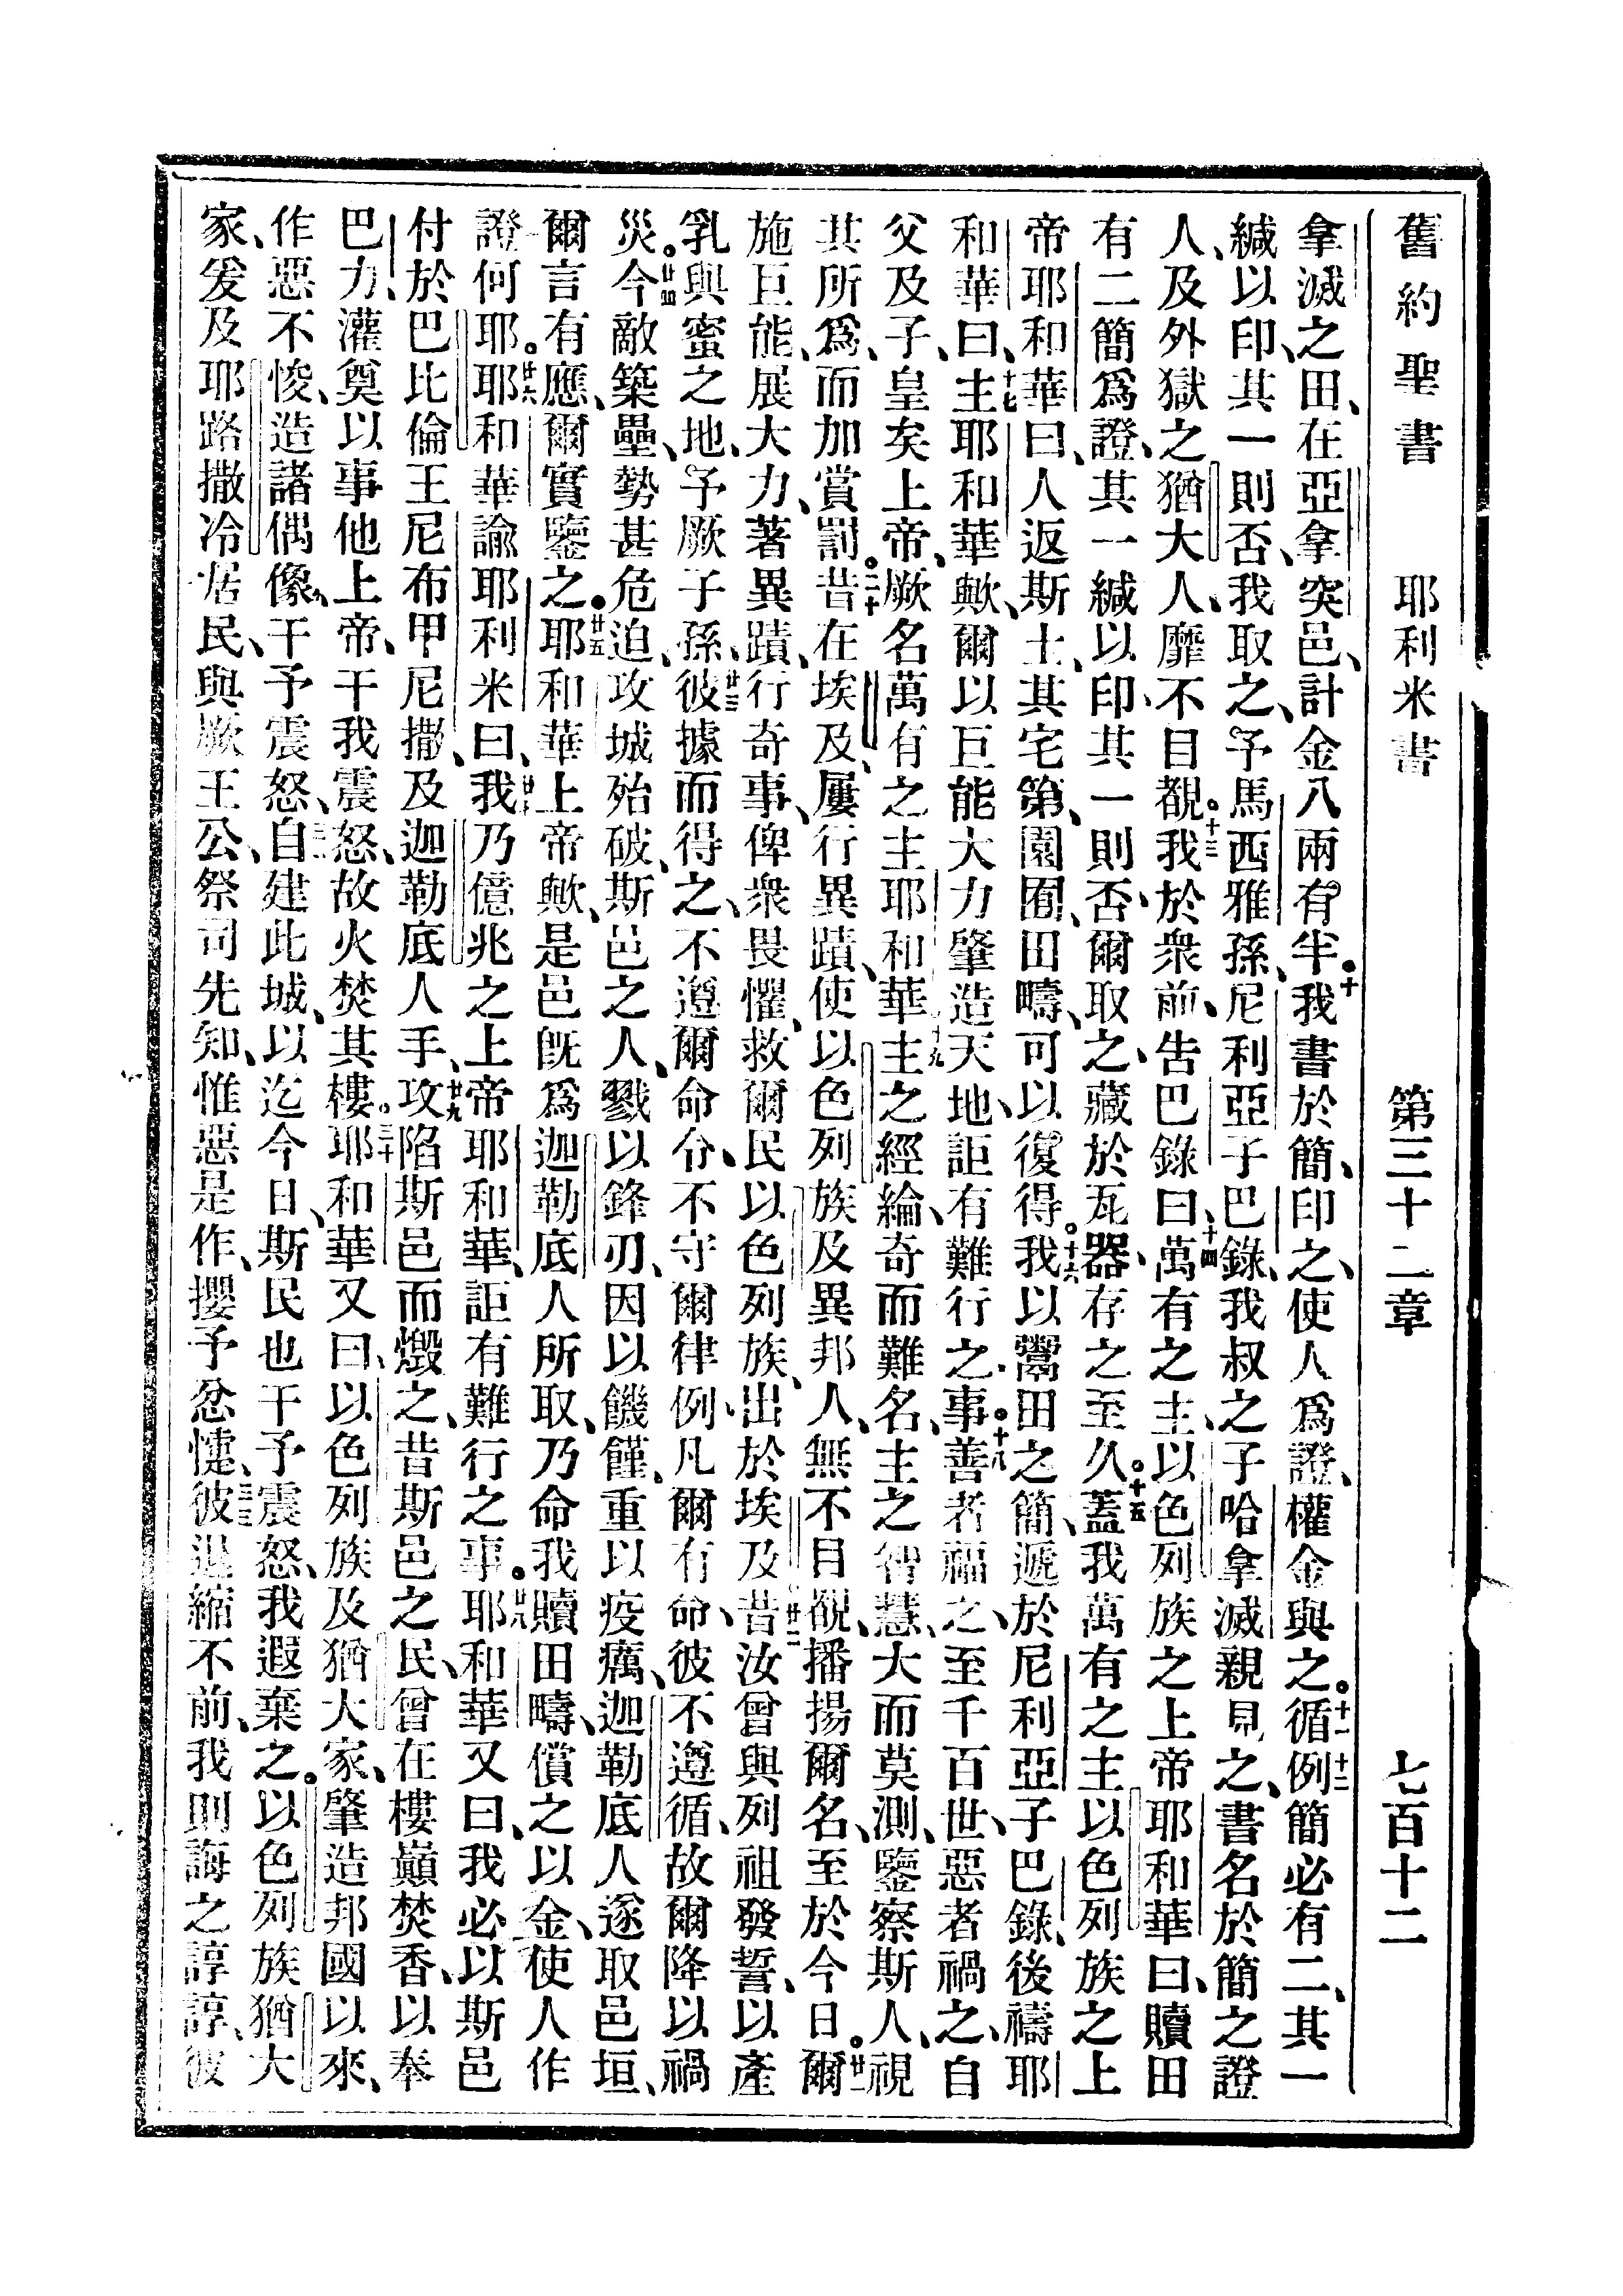 舊約聖書 耶利米書 第三十二章 七百十二
拿滅之田、在亞拿突邑、計金八兩有半。十我書於簡、印之、使人爲證、權金與之。十一十二循例簡必有二、其一
緘以印、其一則否、我取之、予馬西雅孫、尼利亞子巴錄、我叔之子哈拿滅親見之、書名於簡之證
人、及外獄之猶大人、靡不目覩。十三我於衆前、告巴錄曰、十四萬有之主、以色列族之上帝耶和華曰、贖田
有二簡爲證、其一緘以印、其一則否、爾取之、藏於瓦器、存之至久。十五蓋我萬有之主以色列族之上
帝耶和華曰、人返斯土、其宅第、園囿、田疇、可以復得。十六我以鬻田之簡、遞於尼利亞子巴錄、後禱耶
和華曰、十七主耶和華歟、爾以巨能大力肇造天地、詎有難行之事。十八善者福之、至千百世、惡者禍之、自
父及子、皇矣上帝、厥名萬有之主耶和華、十九主之經綸、奇而難名、主之智慧、大而莫測、鑒察斯人、視
其所爲、而加賞罰。二十昔在埃及、屢行異蹟、使以色列族及異邦人、無不目覩、播揚爾名、至於今日。廿一爾
施巨能、展大力、著異蹟、行奇事、俾衆畏懼、救爾民以色列族、出於埃及、廿二昔汝曾與列祖發誓、以產
乳與蜜之地、予厥子孫、廿三彼據而得之、不遵爾命令、不守爾律例、凡爾有命、彼不遵循、故爾降以禍
災。廿四今敵築壘、勢甚危迫、攻城殆破、斯邑之人、戮以鋒刃、因以饑饉、重以疫癘、迦勒底人遂取邑垣、
爾言有應、爾實鑒之。廿五耶和華上帝歟、是邑旣爲迦勒底人所取、乃命我贖田疇、償之以金、使人作
證何耶。廿六耶和華諭耶利米曰、廿七我乃億兆之上帝耶和華、詎有難行之事。廿八耶和華又曰、我必以斯邑
付於巴比倫王尼布甲尼撒、及迦勒底人手、廿九攻陷斯邑而燬之、昔斯邑之民、曾在樓巔焚香、以奉
巴力、灌奠以事他上帝、干我震怒、故火焚其樓。三十耶和華又曰、以色列族及猶大家、肇造邦國以來、
作惡不悛、造諸偶像、干予震怒、三一自建此城、以迄今日、斯民也干予震怒、我遐棄之。以色列族猶大
家、爰及耶路撒冷居民、與厥王公、祭司先知、惟惡是作、攖予忿懥、三三彼退縮不前、我則誨之諄諄、彼